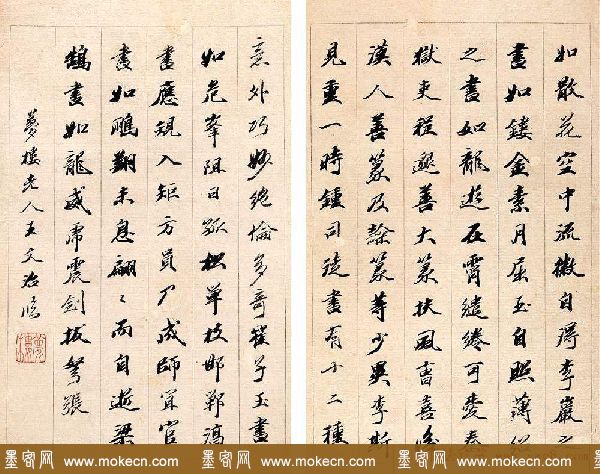 如散花空中流徽自得李巖之
書如鏤金素月屈玉自照薄紹
之書如龍遊在霄繾綣可愛秦
獄吏程邈善大篆扶風曹喜後
漢人善篆及隸篆等少異李斯
見重一時鍾司徒書有十二種
意外巧妙絕倫多奇崔子玉書
如危峯阻日孤松單枝邯鄲淳
書應規入矩方員乃成師宜官
書如鵰翔未息翩〻而自逝梁
鵠書如龍威虎震劍拔弩張
夢樓老人王文治臨
墨客网 www.mokecn.com 墨客网 www.mokecn.com 墨客网 www.mokecn.com 墨客网